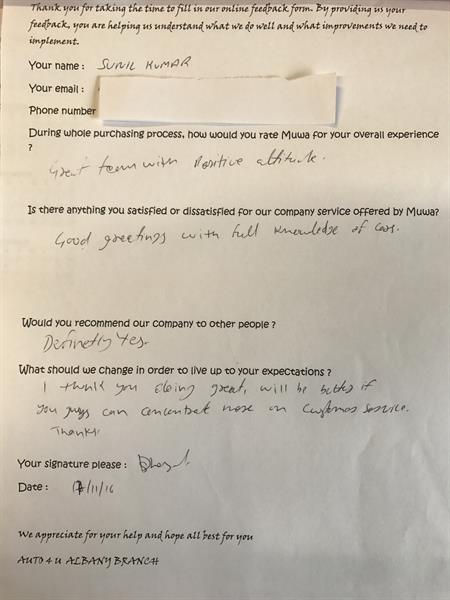 Thank you for taking the time to fill in our online feedback form. By providing us your
feedback, you are helping us understand what we do well and what improvements we need to
implement.
Your name : SUNIL KUMAR
Your email :
Phone number
During whole purchasing process, how would you rate Muwa for your overall experience
?
Great team with Positive attitude.
Is there anything you satisfied or dissatisfied for our company service offered by Muwa?
Good greetings with full knowledge of cars.
Would you recommend our company to other people ?
Definetly Yes.
What should we change in order to live up to your expectations ?
I think you doing great, will be better if
you guys can concentrat more on Customer service.
Thanks.
Your signature please :
Date : /11/16
We appreciate for your help and hope all best for you
AUTO 4 U ALBANY BRANCH